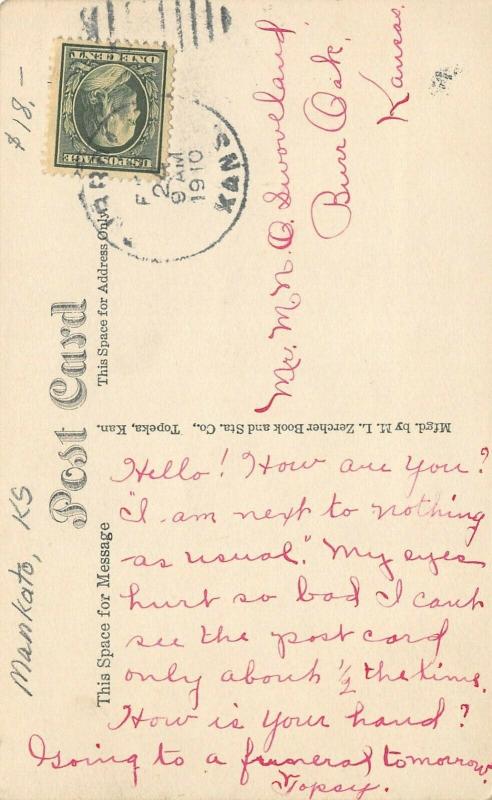 $18.—
Mankato, KS
Post Card
This Space for Message
This Space for Address Only
Mfgd. by M. L. Zercher Book and Sta. Co., Topeka, Kan.
U.S. POSTAGE
ONE CENT
2
9 AM
1910
KANS
Mr. M. N. O. Swoveland
Burr Oak,
Kansas.
Hello! How are you?
"I am next to nothing
as usual." My eyes
hurt so bad I cant
see the postcard
only about 1/2 the time.
How is your hand?
I going to a funeral tomorrow.
Topsy.